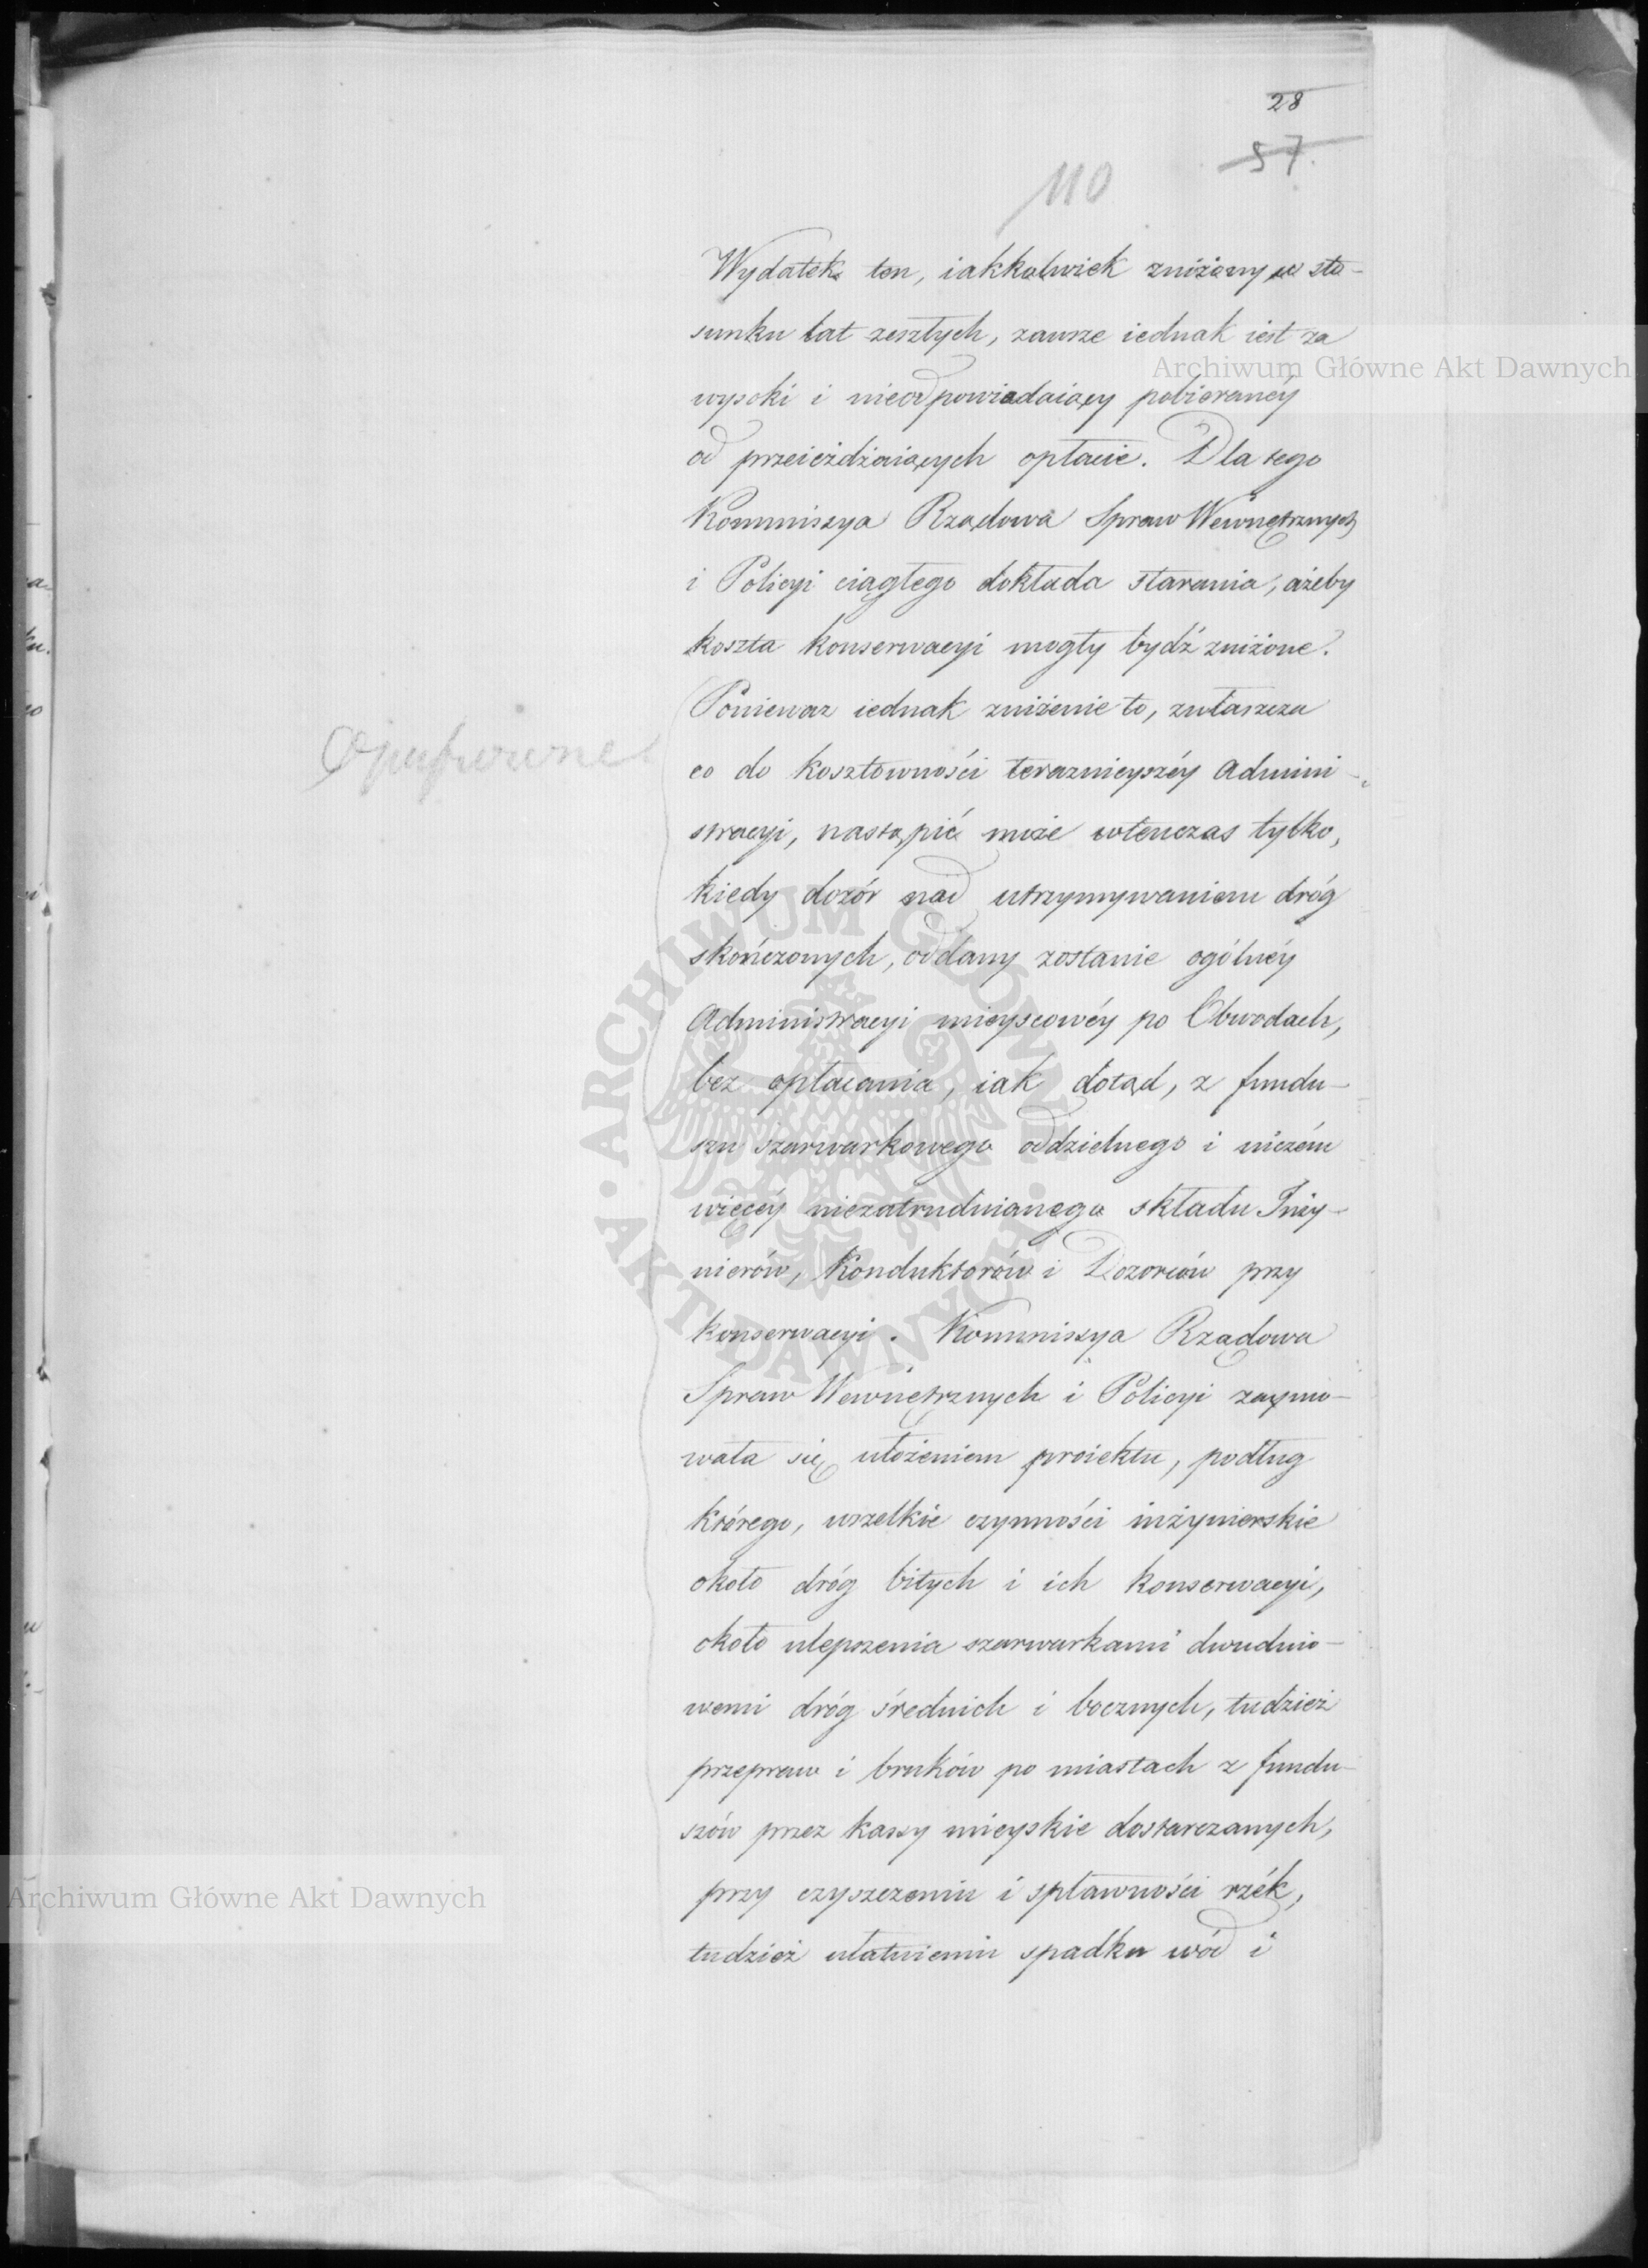 28
57.
110
Wydatek ten, iakkolwiek zniżony w sto-
sunku lat zeszłych, zawsze iednak iest za
Archiwum Główne Akt Dawnych
wysoki i nieodpowiadaiący pobieranéy
od przeieżdżaiących opłacie. Dla tego
Kommissya Rządowa Spraw Wewnętrznych
i Policyi ciągłego dokłada starania, ażeby
koszta konserwacyi mogły bydź zniżone.
Ponieważ iednak zniżenie to, zwłaszcza
co do kosztowności teraznieyszéy Admini-
stracyi, nastąpić może wtenczas tylko,
kiedy dozór nad utrzymywaniem dróg
skończonych, oddany zostanie ogólnéy
Administracyi mieyscowéy po Obwodach,
bez opłacania, iak dotąd, z fundu-
szu szarwarkowego oddzielnego i niczém
więcéy niezatrudnianego składu Inży-
nierów, Konduktorów i Dozorców przy
konserwacyi. Kommissya Rządowa
Spraw Wewnętrznych i Policyi zaymo-
wała się ułożeniem proiektu, podług
którego, wszelkie czynności inżynierskie
około dróg bitych i ich konserwacyi,
około ulepszenia szarwarkami dwudnio-
wemi dróg średnich i bocznych, tudzież
przepraw i bruków po miastach z fundu-
szów przez kassy mieyskie dostarczanych,
przy czyszczeniu i spławności rzék,
tudzież ułatwieniu spadku wód i
Archiwum Główne Akt Dawnych
ARCHIWUM GŁÓWNE AKT DAWNYCH